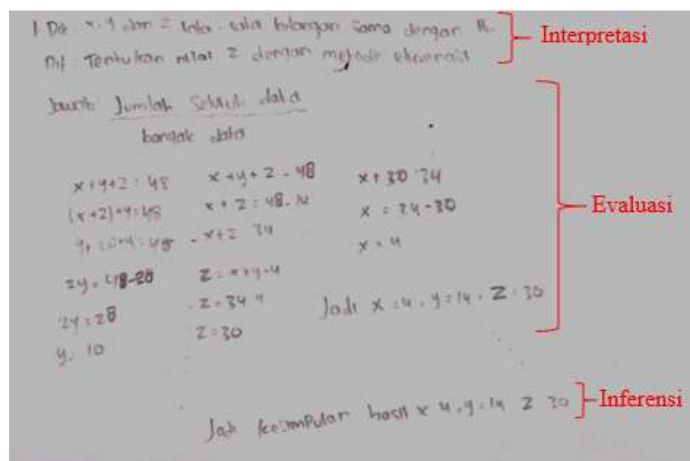 1. Dik : x, y dan z rata-rata bilangan sama dengan 16.
Dit : Tentukan nilai z dengan metode eliminasi
Jawab: Jumlah Seluruh data
banyak data
x+y+z = 48
(x+z)+y=48
y+20+y=48
2y = 48-20
2y = 28
y. 10
x+y+z = 48
x + z = 48-14
x+z 34
z = x+y-4
z = 34 4
z = 30
x + 30 34
x = 34-30
x = 4
Jadi x = 4, y = 14, z = 30
Jadi kesimpulan hasil x 4, y = 14 z 30
Interpretasi
Evaluasi
Inferensi